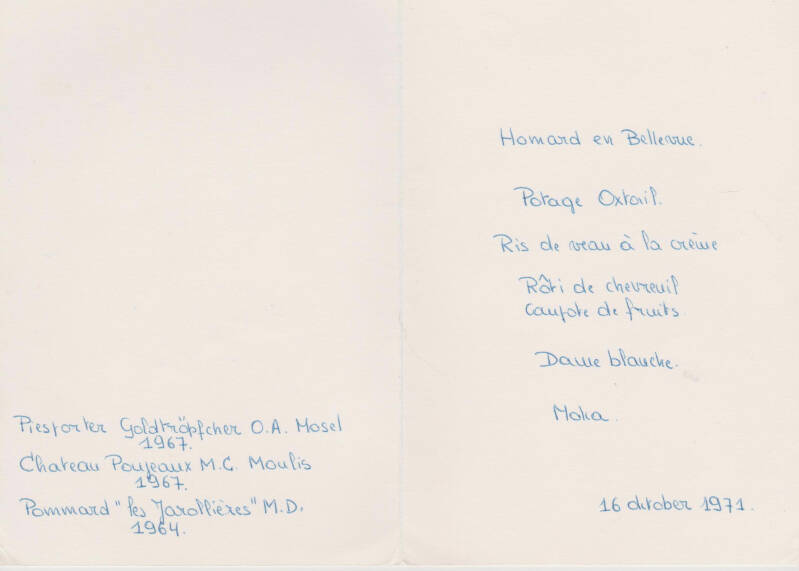 Piesporter Goldtröpfcher O.A. Mosel
1967.
Chateau Poujeaux M.C. Moulis
1967.
Pommard "les Jarollières" M.D.
1964.
Homard en Bellevue.
Potage Oxtail.
Ris de veau à la crème
Rôti de chevreuil
Compote de fruits.
Dame blanche.
Moka.
16 oktober 1971.